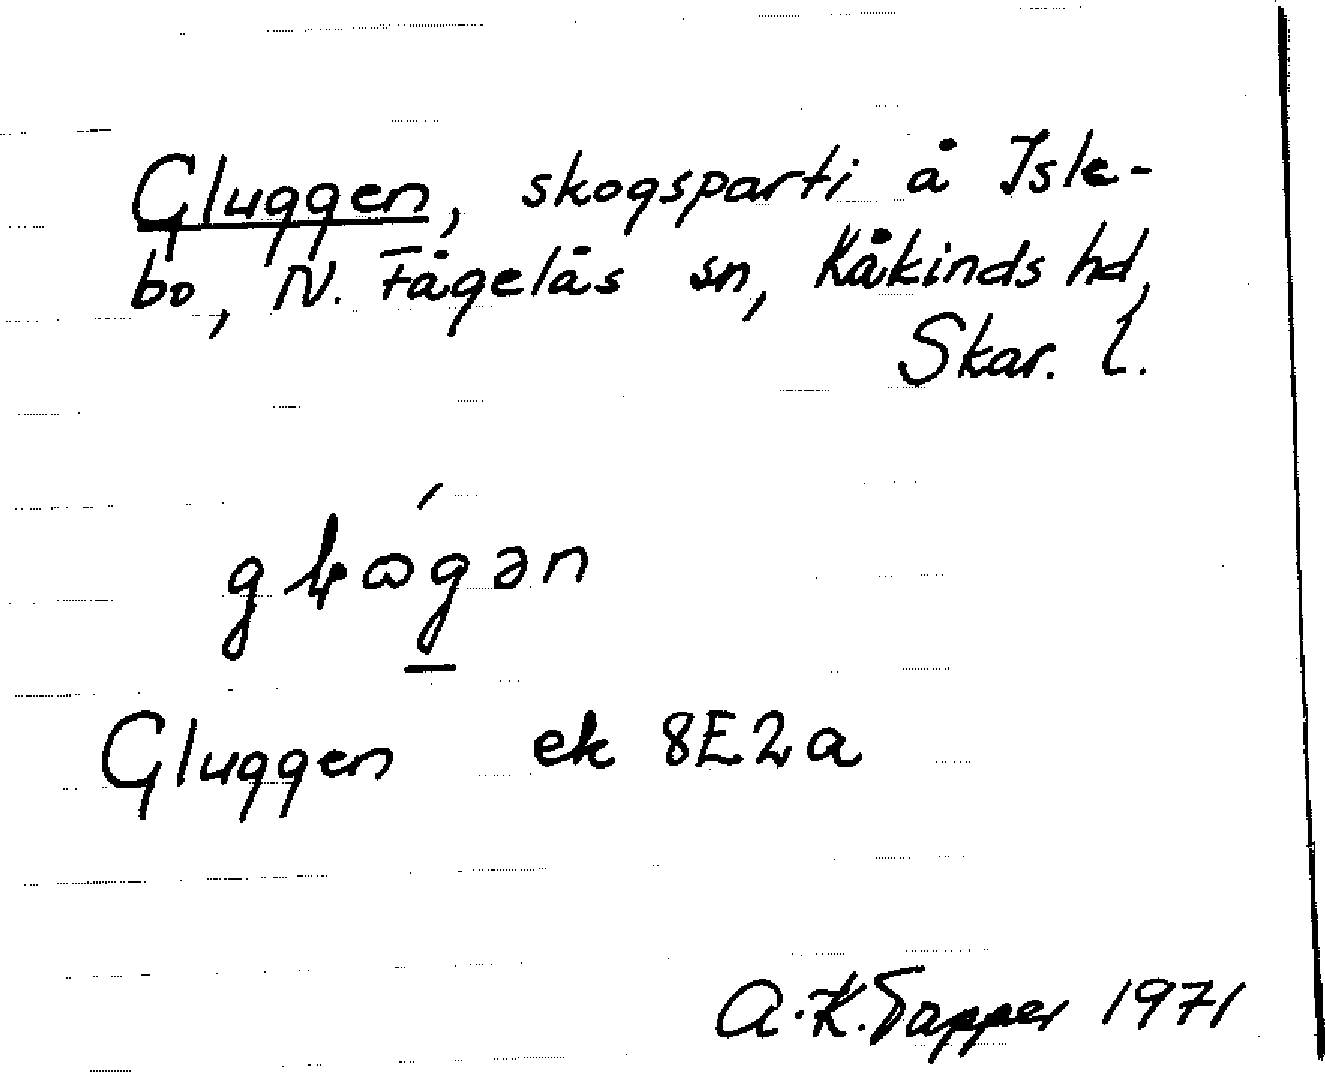 Gluggen, skogsparti å Isle-
bo, N. Fågelås sn, Kåkinds hd,
Skar. l.
gɬɷ́g̱ən
Gluggen ek 8E2a
A.-K. Tapper 1971